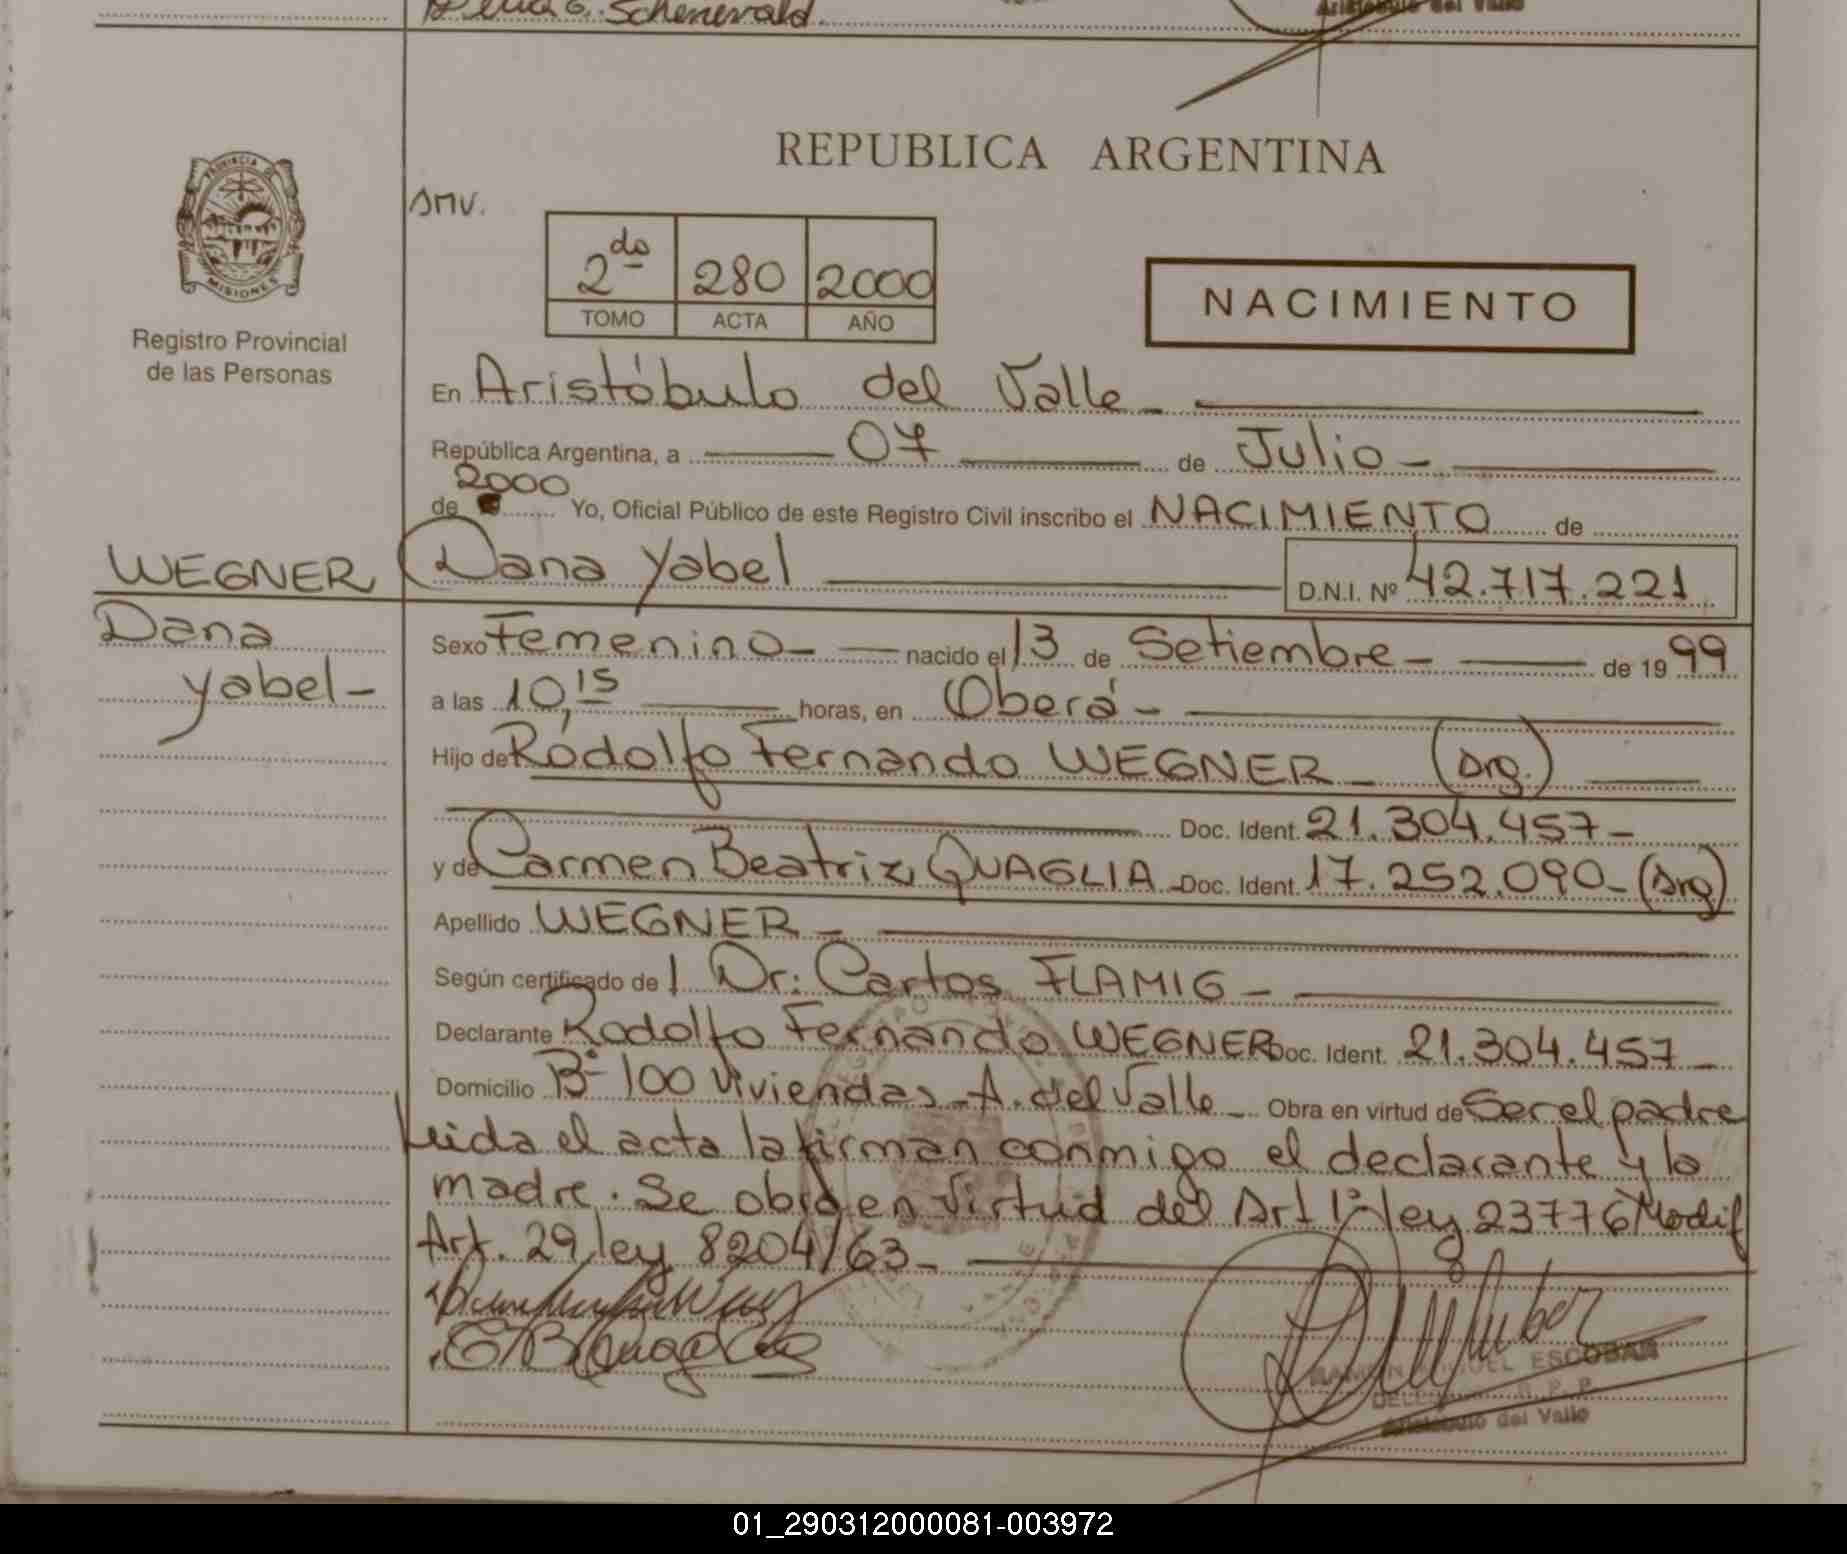 Schenevald.
Aristóbulo del Valle
REPUBLICA ARGENTINA
PROVINCIA DE
MISIONES
Registro Provincial
de las Personas
SMV.
2do 280 2000
TOMO ACTA AÑO
NACIMIENTO
En Aristóbulo del Valle
República Argentina, a 07 de Julio
de 2000 Yo, Oficial Público de este Registro Civil inscribo el NACIMIENTO de
WEGNER Dana Yabel D.N.I. Nº 42.717.221
Dana
Yabel
Sexo Femenino nacido el 13 de Setiembre de 1999
a las 10,15 horas, en Oberá
Hijo de Rodolfo Fernando WEGNER (Arg.)
Doc. Ident. 21.304.457
y de Carmen Beatriz QUAGLIA Doc. Ident. 17.252.090 (Arg)
Apellido WEGNER
Según certificado de Dr. Carlos FLAMIG
Declarante Rodolfo Fernando WEGNER Doc. Ident. 21.304.457
Domicilio Bº 100 Viviendas A. del Valle Obra en virtud de Ser el padre
Leida el acta la firman conmigo el declarante y la
madre. Se obró en virtud del Art 1º ley 23776 Modif
Art. 29 ley 8204/63
RAMÓN MIGUEL ESCOBAR
Aristóbulo del Valle
01_290312000081-003972